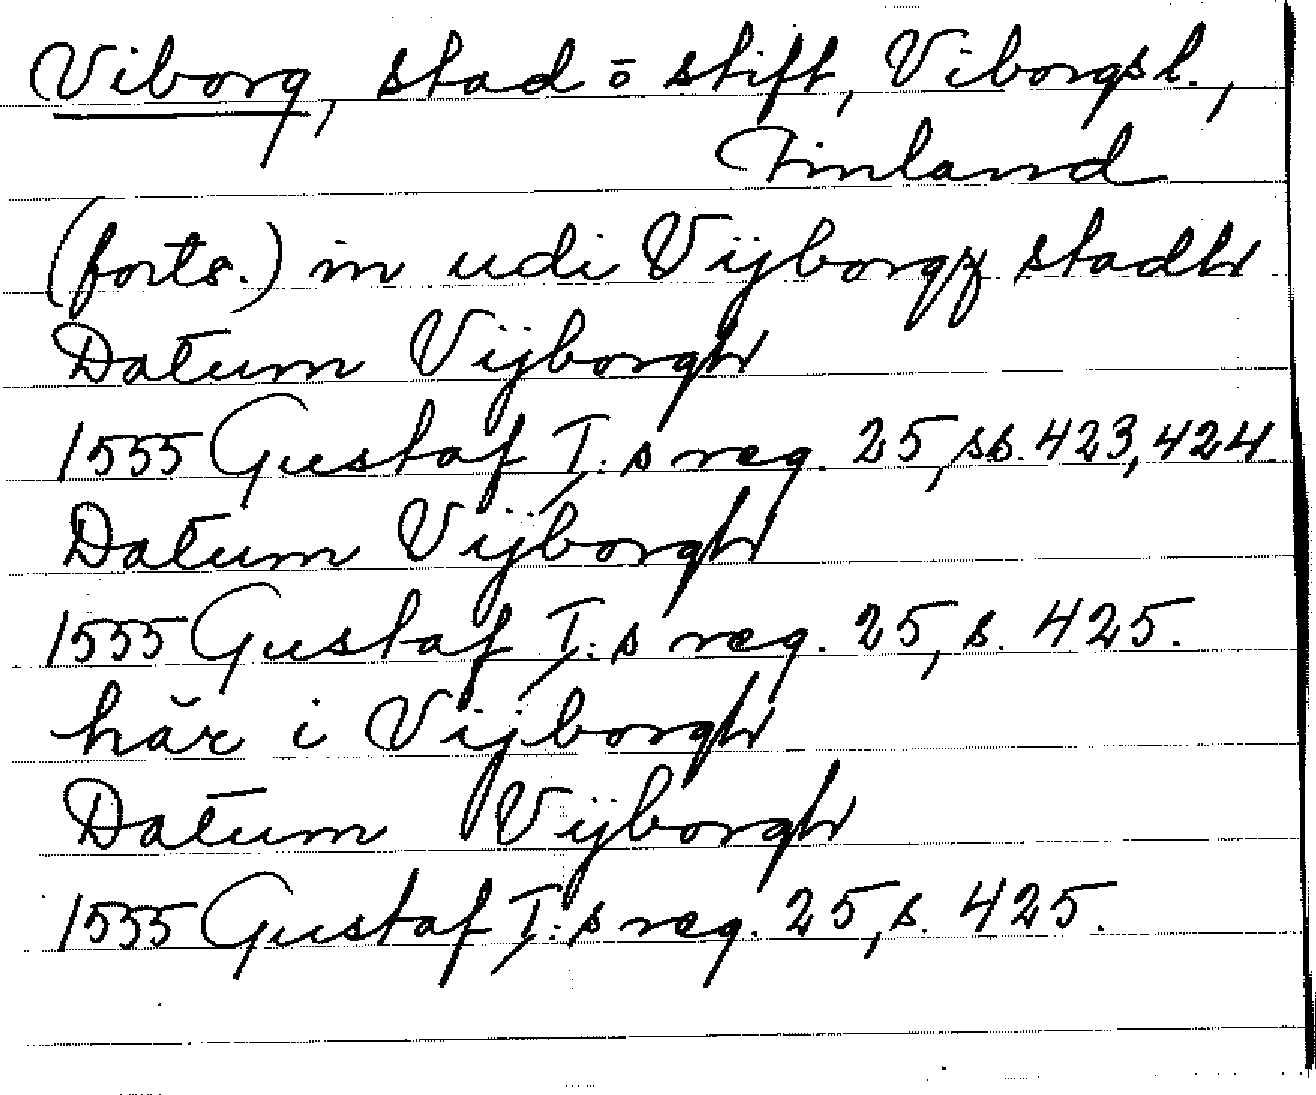 Viborg, stad o stift, Viborgs l.,
Finland
(forts.) in udi Vijborgz stadh
Datum Vijborgh
1555 Gustaf I:s reg. 25, ss. 423, 424
Datum Vijborgh
1555 Gustaf I:s reg. 25, s. 425.
här i Vijborgh
Datum Vijborgh
1555 Gustaf I:s reg. 25, s. 425.